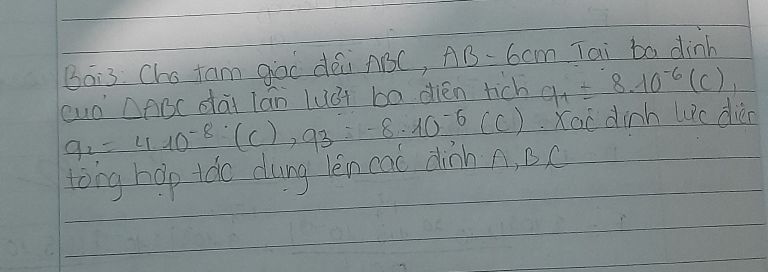 Bài 3: Cho tam giác đều ABC, AB = 6cm Tại ba đỉnh
của ΔABC đặt lần lượt ba điện tích q₁ = 8.10⁻⁶ (C),
q₂ = 4.10⁻⁸ (C), q₃ = -8.10⁻⁶ (C). Xác định lực điện
tổng hợp tác dụng lên các đỉnh A, B, C